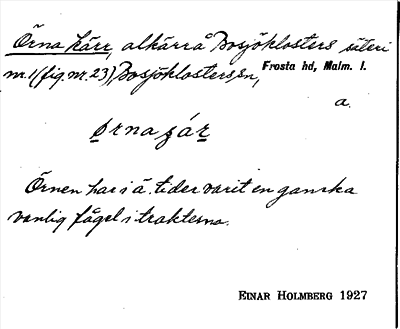 Örna kärr, alkärr å Bosjöklosters säteri
nr. 1 (fig. nr. 23), Bosjöklosters sn, Frosta hd, Malm. l.
a.
ørna ʒár
Örnen har i ä. tider varit en ganska
vanlig fågel i trakterna.
EINAR HOLMBERG 1927